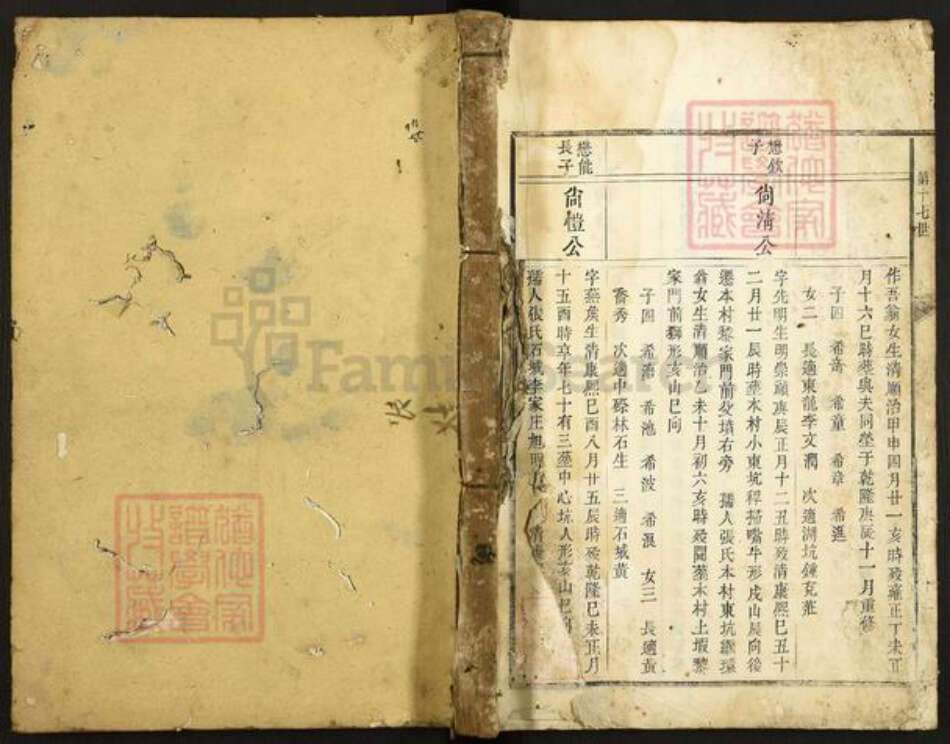 第十七世
作吾翁女生清順治甲申四月廿一亥時歿雍正丁未正
月十六巳時葬與夫同塋于乾隆庚辰十一月重修
子四 希奇 希童 希章 希進
女二 長適東龍李文潤 次適湖坑鍾克莊
懋欽
子
尙淸公
字先明生明崇禎庚辰正月十二丑時歿清康熙己丑十
二月廿一辰時葬本村小東坑 嘴牛形戌山辰向後
遷本村黎家門前父墳右旁 孺人張氏本村東坑
翁女生清順治乙未十月初六亥時歿闕葬本村上塅黎
家門前獅形亥山巳向
子四 希浦 希池 希波 希混 女三 長適黃
喬秀 次適中磜林石生 三適石城黃
懋能
長子
尙愷公
字燕侯生清康熙己酉八月廿五辰時歿乾隆己未正月
十五酉時享年七十有三葬中心坑人形亥山巳向
孺人張氏石城李家庄旭明
Family